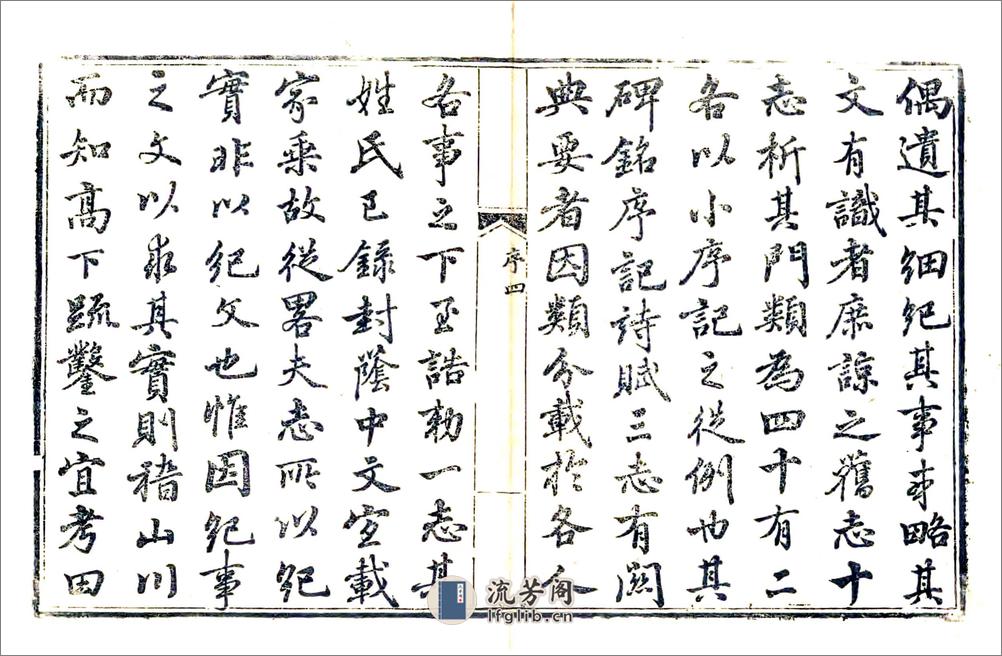 偶遺其細紀其事略其
文有識者庶諒之舊志十
志析其門類為四十有二
各以小序記之從例也其
碑銘序記詩賦三志有関
典要者因類分載於各人
序四
各事之下至誥勅一志其
姓氏已錄封蔭中文宜載
家乘故從畧夫志所以紀
實非以紀文也惟因紀事
之文以求其實則稽山川
而知高下疏鑿之宜考田
流芳阁
lfglib.cn